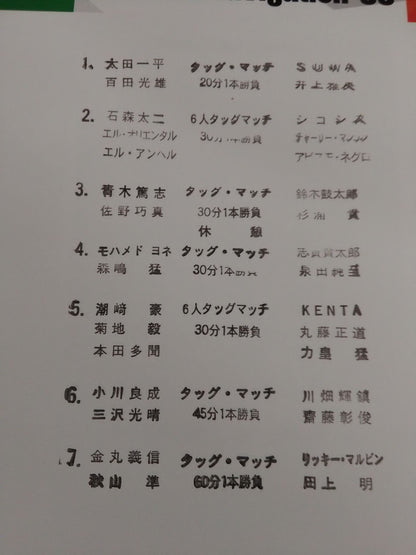 1. 太田一平 タッグ・マッチ SUWA
百田光雄 20分1本勝負 井上雅央
2. 石森太二 6人タッグマッチ シコシス
エル・オリエンタル 30分1本勝負 チャーリー・マンソン
エル・アンヘル アビスモ・ネグロ
3. 青木篤志 タッグ・マッチ 鈴木鼓太郎
佐野巧真 30分1本勝負 杉浦 貴
休 憩
4. モハメド ヨネ タッグ・マッチ 志賀賢太郎
森嶋 猛 30分1本勝負 泉田純至
5. 潮﨑 豪 6人タッグマッチ KENTA
菊地 毅 30分1本勝負 丸藤正道
本田多聞 力皇 猛
6. 小川良成 タッグ・マッチ 川畑輝鎮
三沢光晴 45分1本勝負 齋藤彰俊
7. 金丸義信 タッグ・マッチ リッキー・マルビン
秋山 準 60分1本勝負 田上 明